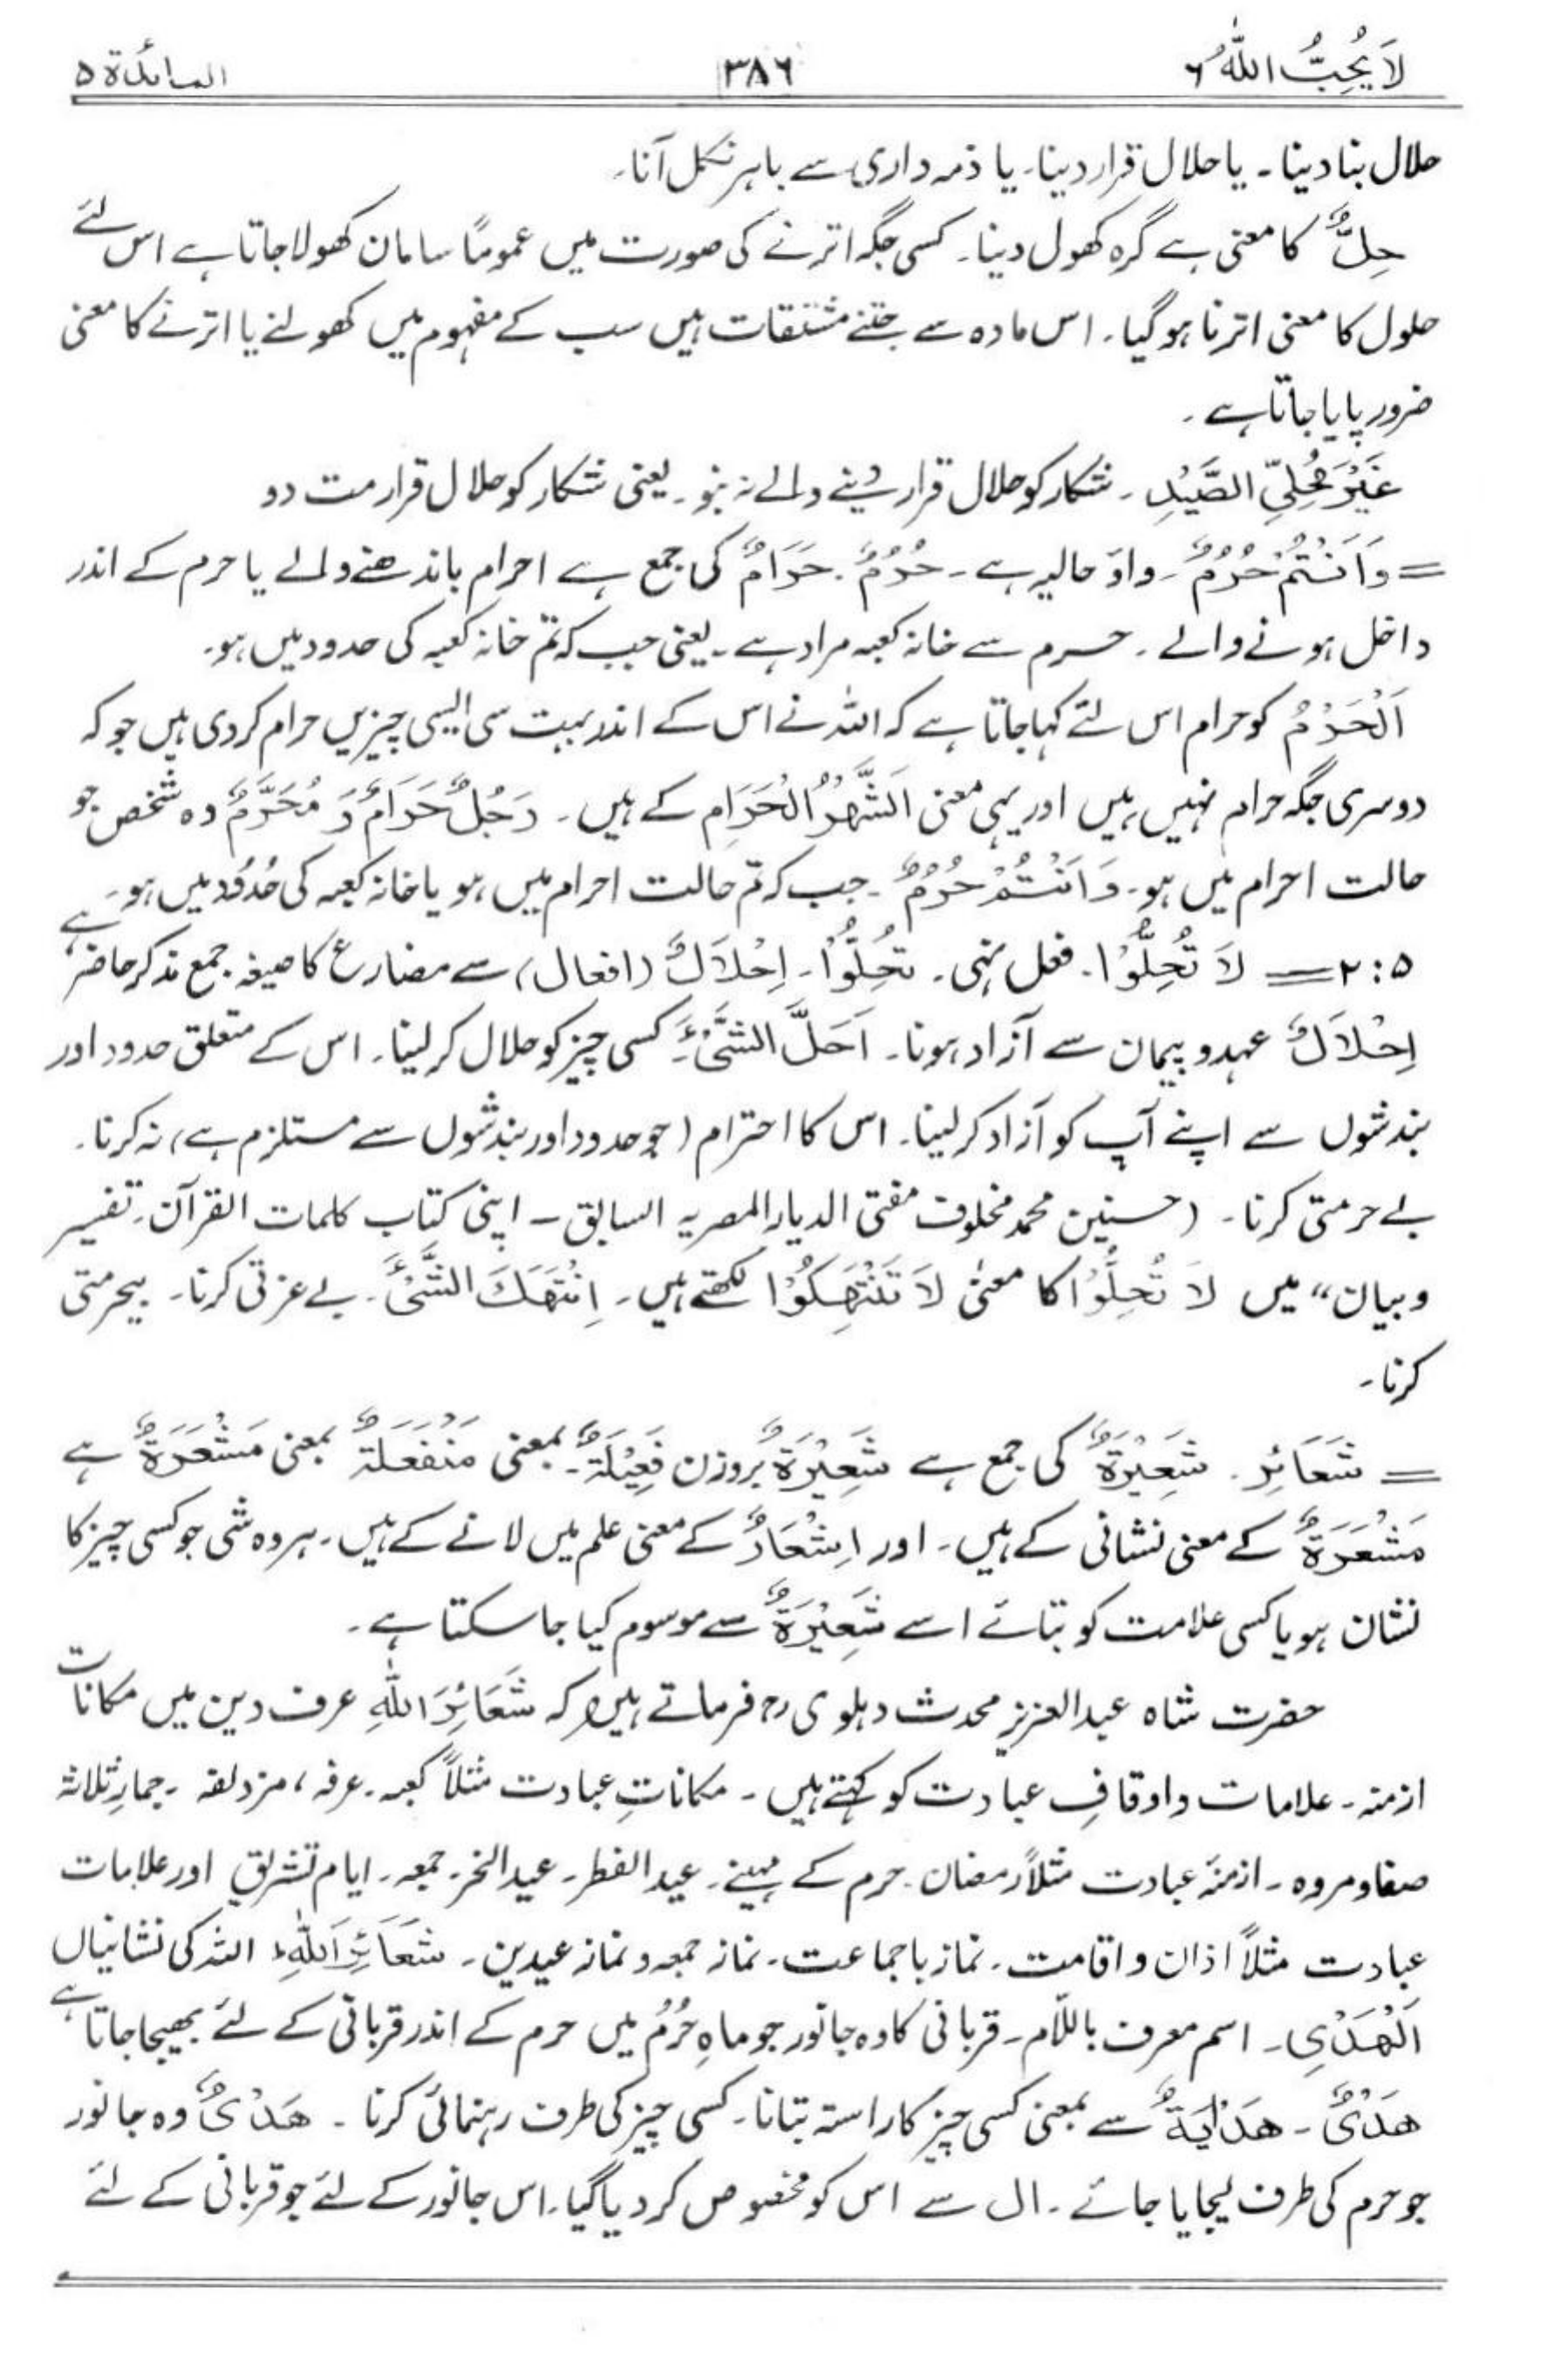 لَا یُحِبُّ اللّٰہُ ۶ ۳۸۶ المائدۃ ۵
حلال بنا دینا۔ یا حلال قرار دینا۔ یا ذمہ داری سے باہر نکل آنا۔
حِلٌّ کا معنی ہے گرہ کھول دینا۔ کسی جگہ اترنے کی صورت میں عمومًا سامان کھولا جاتا ہے اس لئے
حلول کا معنی اترنا ہو گیا۔ اس مادہ سے جتنے مشتقات ہیں سب کے مفہوم میں کھولنے یا اترنے کا معنی
ضرور پایا جاتا ہے۔
غَیْرَ مُحِلِّی الصَّیْدِ۔ شکار کو حلال قرار دینے والے نہ بنو۔ یعنی شکار کو حلال قرار مت دو
= وَاَنْتُمْ حُرُمٌ۔ واؤ حالیہ ہے۔ حُرُمٌ۔ حَرَامٌ کی جمع ہے احرام باندھنے والے یا حرم کے اندر
داخل ہونے والے۔ حرم سے خانہ کعبہ مراد ہے۔ یعنی جب کہ تم خانہ کعبہ کی حدود میں ہو۔
اَلْحَرَمُ کو حرام اس لئے کہا جاتا ہے کہ اللہ نے اس کے اندر بہت سی ایسی چیزیں حرام کر دی ہیں جو کہ
دوسری جگہ حرام نہیں ہیں اور یہی معنی اَلشَّہْرُ الْحَرَامِ کے ہیں۔ رَجُلٌ حَرَامٌ وَ مُحَرَّمٌ وہ شخص جو
حالت احرام میں ہو۔ وَاَنْتُمْ حُرُمٌ۔ جب کہ تم حالت احرام میں ہو یا خانہ کعبہ کی حُدُوْد میں ہو۔
۵:۲ = لَا تُحِلُّوْا۔ فعل نہی۔ تُحِلُّوْا۔ اِحْلَالٌ (افعال) سے مضارع کا صیغہ جمع مذکر حاضر ہے
اِحْلَالٌ عہد و پیمان سے آزاد ہونا۔ اَحَلَّ الشَّیْءَ کسی چیز کو حلال کر لینا۔ اس کے متعلق حدود اور
بندشوں سے اپنے آپ کو آزاد کر لینا۔ اس کا احترام (جو حدود اور بندشوں سے مستلزم ہے) نہ کرنا۔
بے حرمتی کرنا۔ (حسنین محمد مخلوف مفتی الدیار المصریہ السابق – اپنی کتاب کلمات القرآن۔ تفسیر
و بیان“ میں لَا تُحِلُّوْا کا معنیٰ لَا تَنْتَہِکُوْا لکھتے ہیں۔ اِنْتَہَکَ الشَّیْءَ۔ بے عزتی کرنا۔ بیحرمتی
کرنا۔
= شَعَائِرَ۔ شَعِیْرَۃٌ کی جمع ہے شَعِیْرَۃٌ بروزن فَعِیْلَۃٌ۔ بمعنی مَنْفَعَلَۃٌ بمعنی مَشْعَرَۃٌ ہے
مَشْعَرَۃٌ کے معنی نشانی کے ہیں۔ اور اِشْعَارٌ کے معنی علم میں لانے کے ہیں۔ ہر وہ شی جو کسی چیز کا
نشان ہو یا کسی علامت کو بتائے اسے شَعِیْرَۃٌ سے موسوم کیا جا سکتا ہے۔
حضرت شاہ عبدالعزیز محدث دہلوی رح فرماتے ہیں کہ شَعَائِرَ اللّٰہِ عرف دین میں مکانات
ازمنہ۔ علامات و اوقافِ عبادت کو کہتے ہیں۔ مکاناتِ عبادت مثلاً کعبہ۔ عرفہ، مزدلفہ۔ جمارِ ثلاثہ
صفا و مروہ۔ ازمنۂ عبادت مثلاً رمضان۔ حرم کے مہینے۔ عید الفطر۔ عید النحر۔ جمعہ۔ ایام تشریق اور علامات
عبادت مثلاً اذان و اقامت۔ نماز باجماعت۔ نماز جمعہ و نماز عیدین۔ شَعَائِرَ اللّٰہِ، اللہ کی نشانیاں
اَلْہَدْیِ۔ اسم معرف باللّام۔ قربانی کا وہ جانور جو ماہِ حُرُمْ میں حرم کے اندر قربانی کے لئے بھیجا جاتا ہے
ھَدْیٌ۔ ھَدَایَۃٌ سے بمعنی کسی چیز کا راستہ بتانا۔ کسی چیز کی طرف رہنمائی کرنا۔ ھَدْیٌ وہ جانور
جو حرم کی طرف لیجایا جائے۔ ال سے اس کو مخصوص کر دیا گیا۔ اس جانور کے لئے جو قربانی کے لئے